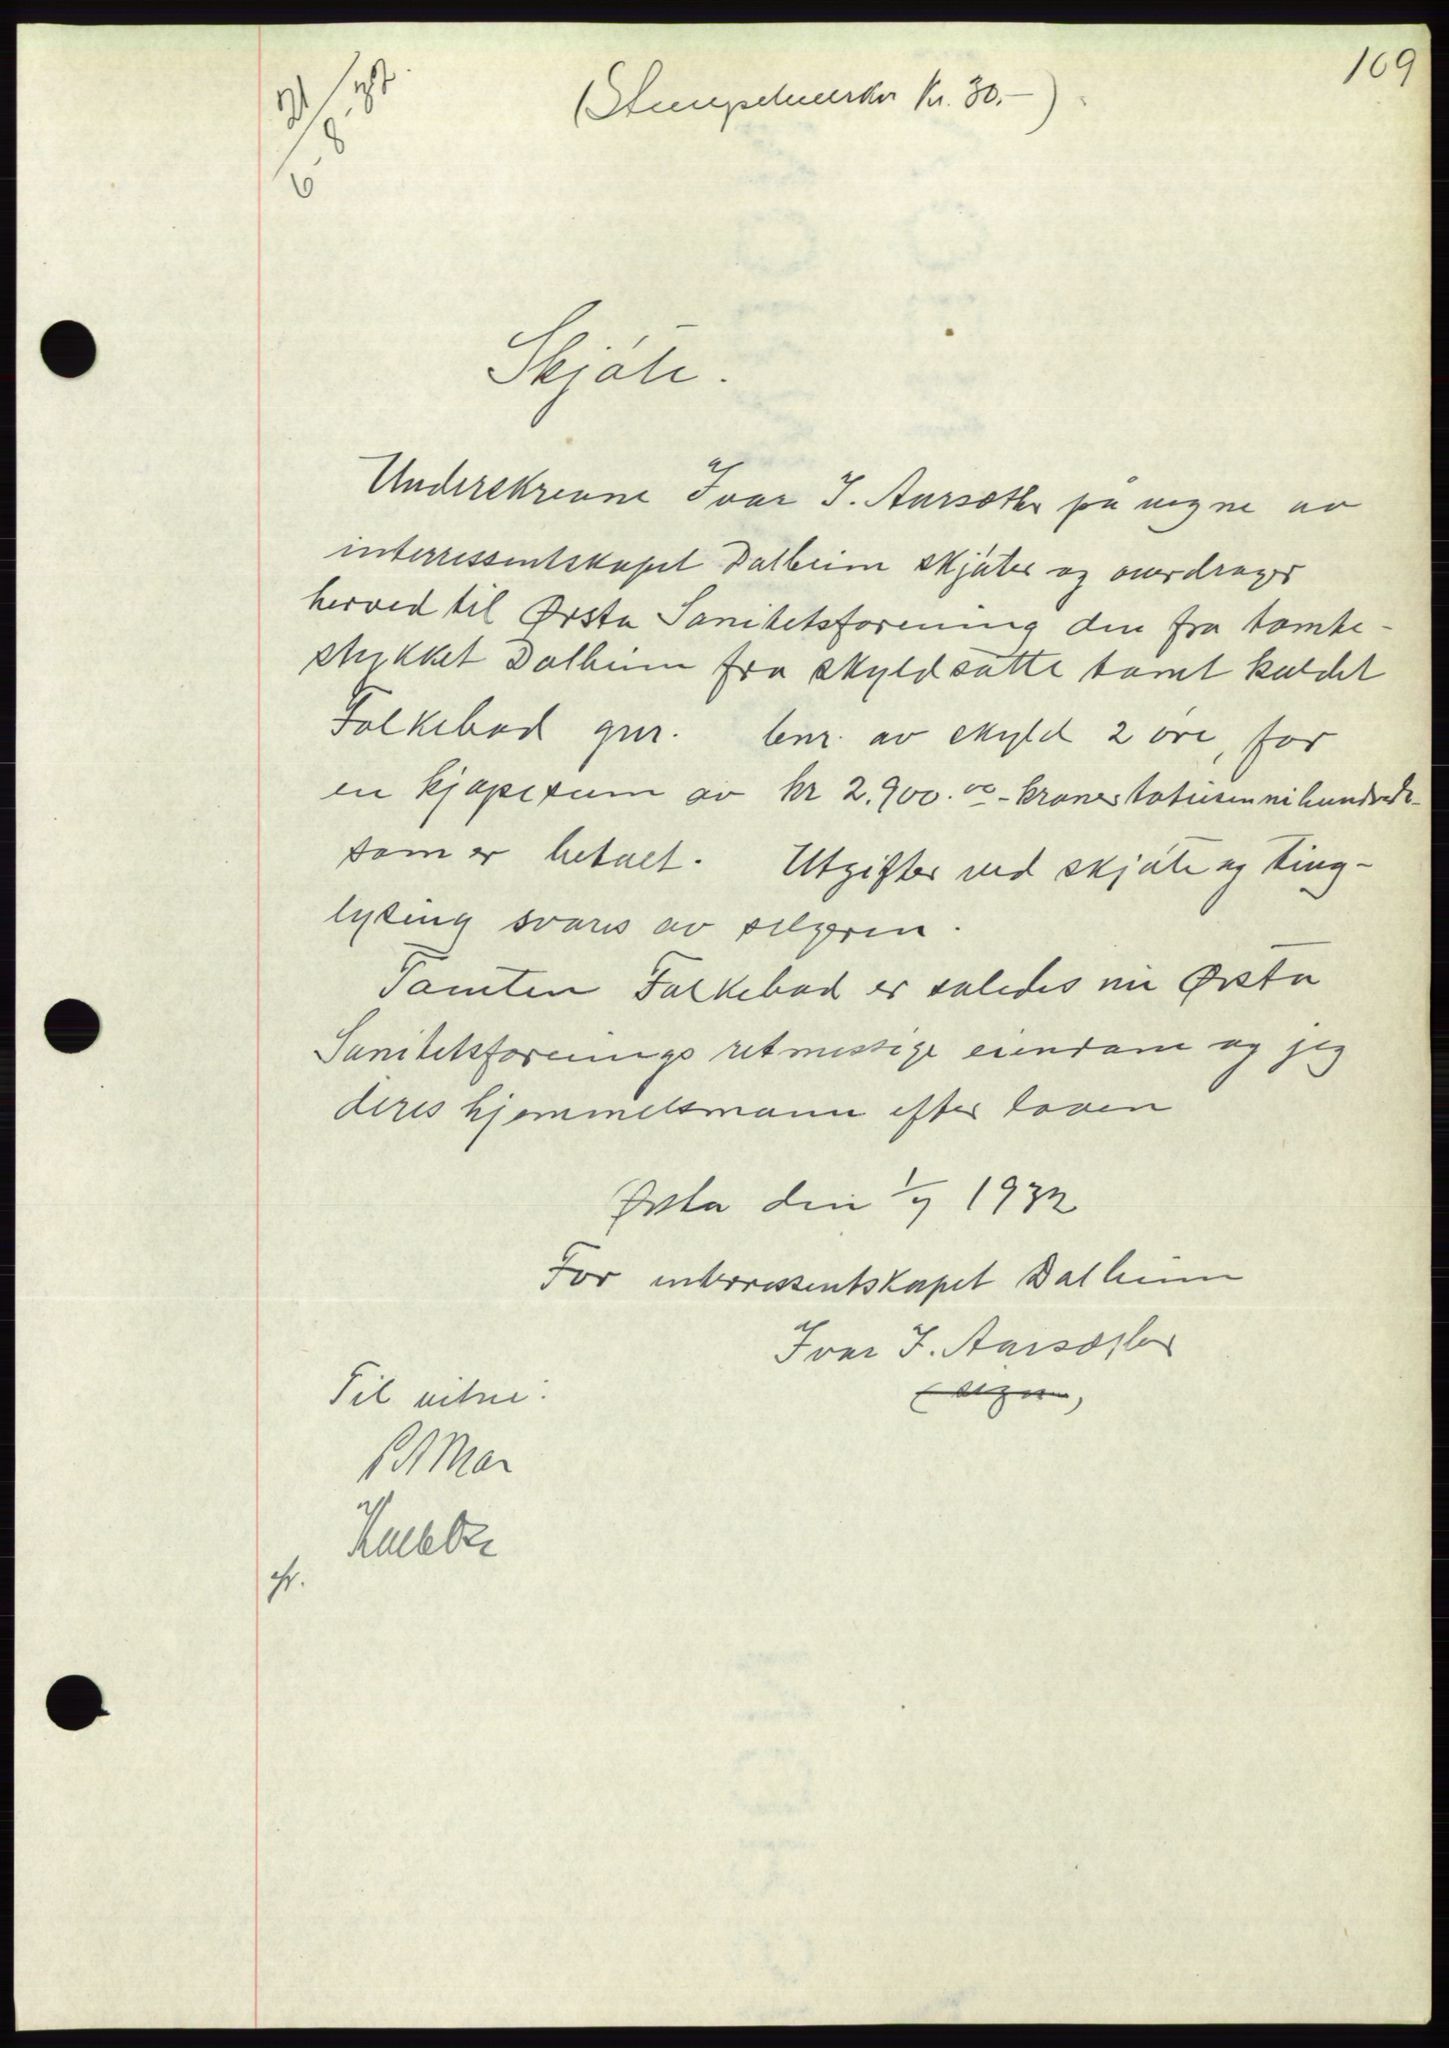 109
(Stempelmerker Kr. 30.-)
Skjøte.
Underskrevne Ivar I. Aarsæther på vegne av
interressentskapet Dalheim skjøter og overdrager
herved til Ørsta Sanitetsforening den fra tomte-
stykket Dalheim fra skyldsatte tomt kaldet
Folkebad gnr. bnr. av skyld 2 øre, for
en kjøpesum av kr 2.900.00 - kroner totusennihundrede-
som er betalt. Utgifter ved skjøte og ting-
lysing svares av selgeren.
Tomten Folkebad er saledes nu Ørsta
Sanitetsforenings retmessige eiendom og jeg
deres hjemmelsmann efter loven
Ørsta den 1/7 1932
For interressentskapet Dalheim
Ivar I. Aarsæther
Til vitne: